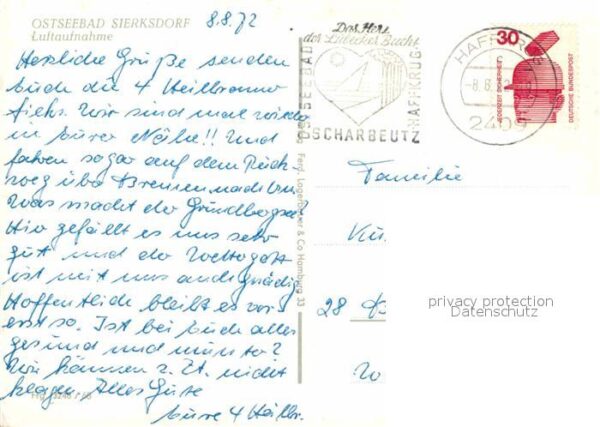 OSTSEEBAD SIERKSDORF
Luftaufnahme
8.8.72
Herzliche Grüße senden
Euch die 4 Heilbronner
Wir sind mal wieder
in Eurer Nähe!! Und
fahren sogar auf dem Rück-
weg über Bremen nach
Was macht der
Hier gefällt es uns sehr
gut und der Wettergott
ist mit uns auch gnädig
Hoffentlich bleibt es vor-
erst so. Ist bei Euch alles
gesund und munter?
Wir können z. Zt. nicht
klagen. Alles Gute
Eure 4 Heilbr.
Ferd. Lagerbauer & Co Hamburg 33
Das Herz
der Lübecker Bucht
OSTSEEBAD
HAFFKRUG
SCHARBEUTZ
HAFFKRUG
-8.8.
2409
30
JEDERZEIT SICHERHEIT
DEUTSCHE BUNDESPOST
Familie
28 B
privacy protection
Datenschutz